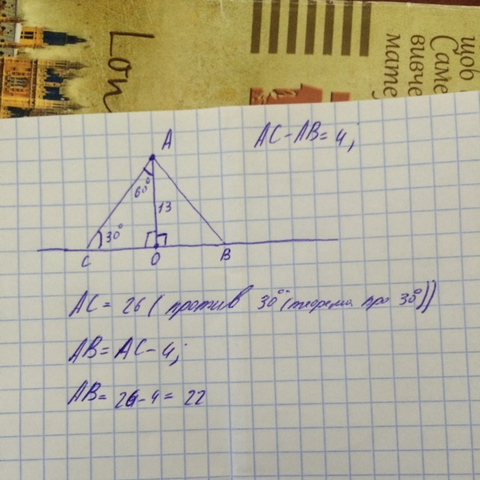 Lon
щоб
Саме
вивче
мате
A
AC-AB=4;
60°
13
30°
C
O
B
AC = 26 (против 30° (теорема про 30°))
AB = AC-4;
AB = 26-4 = 22